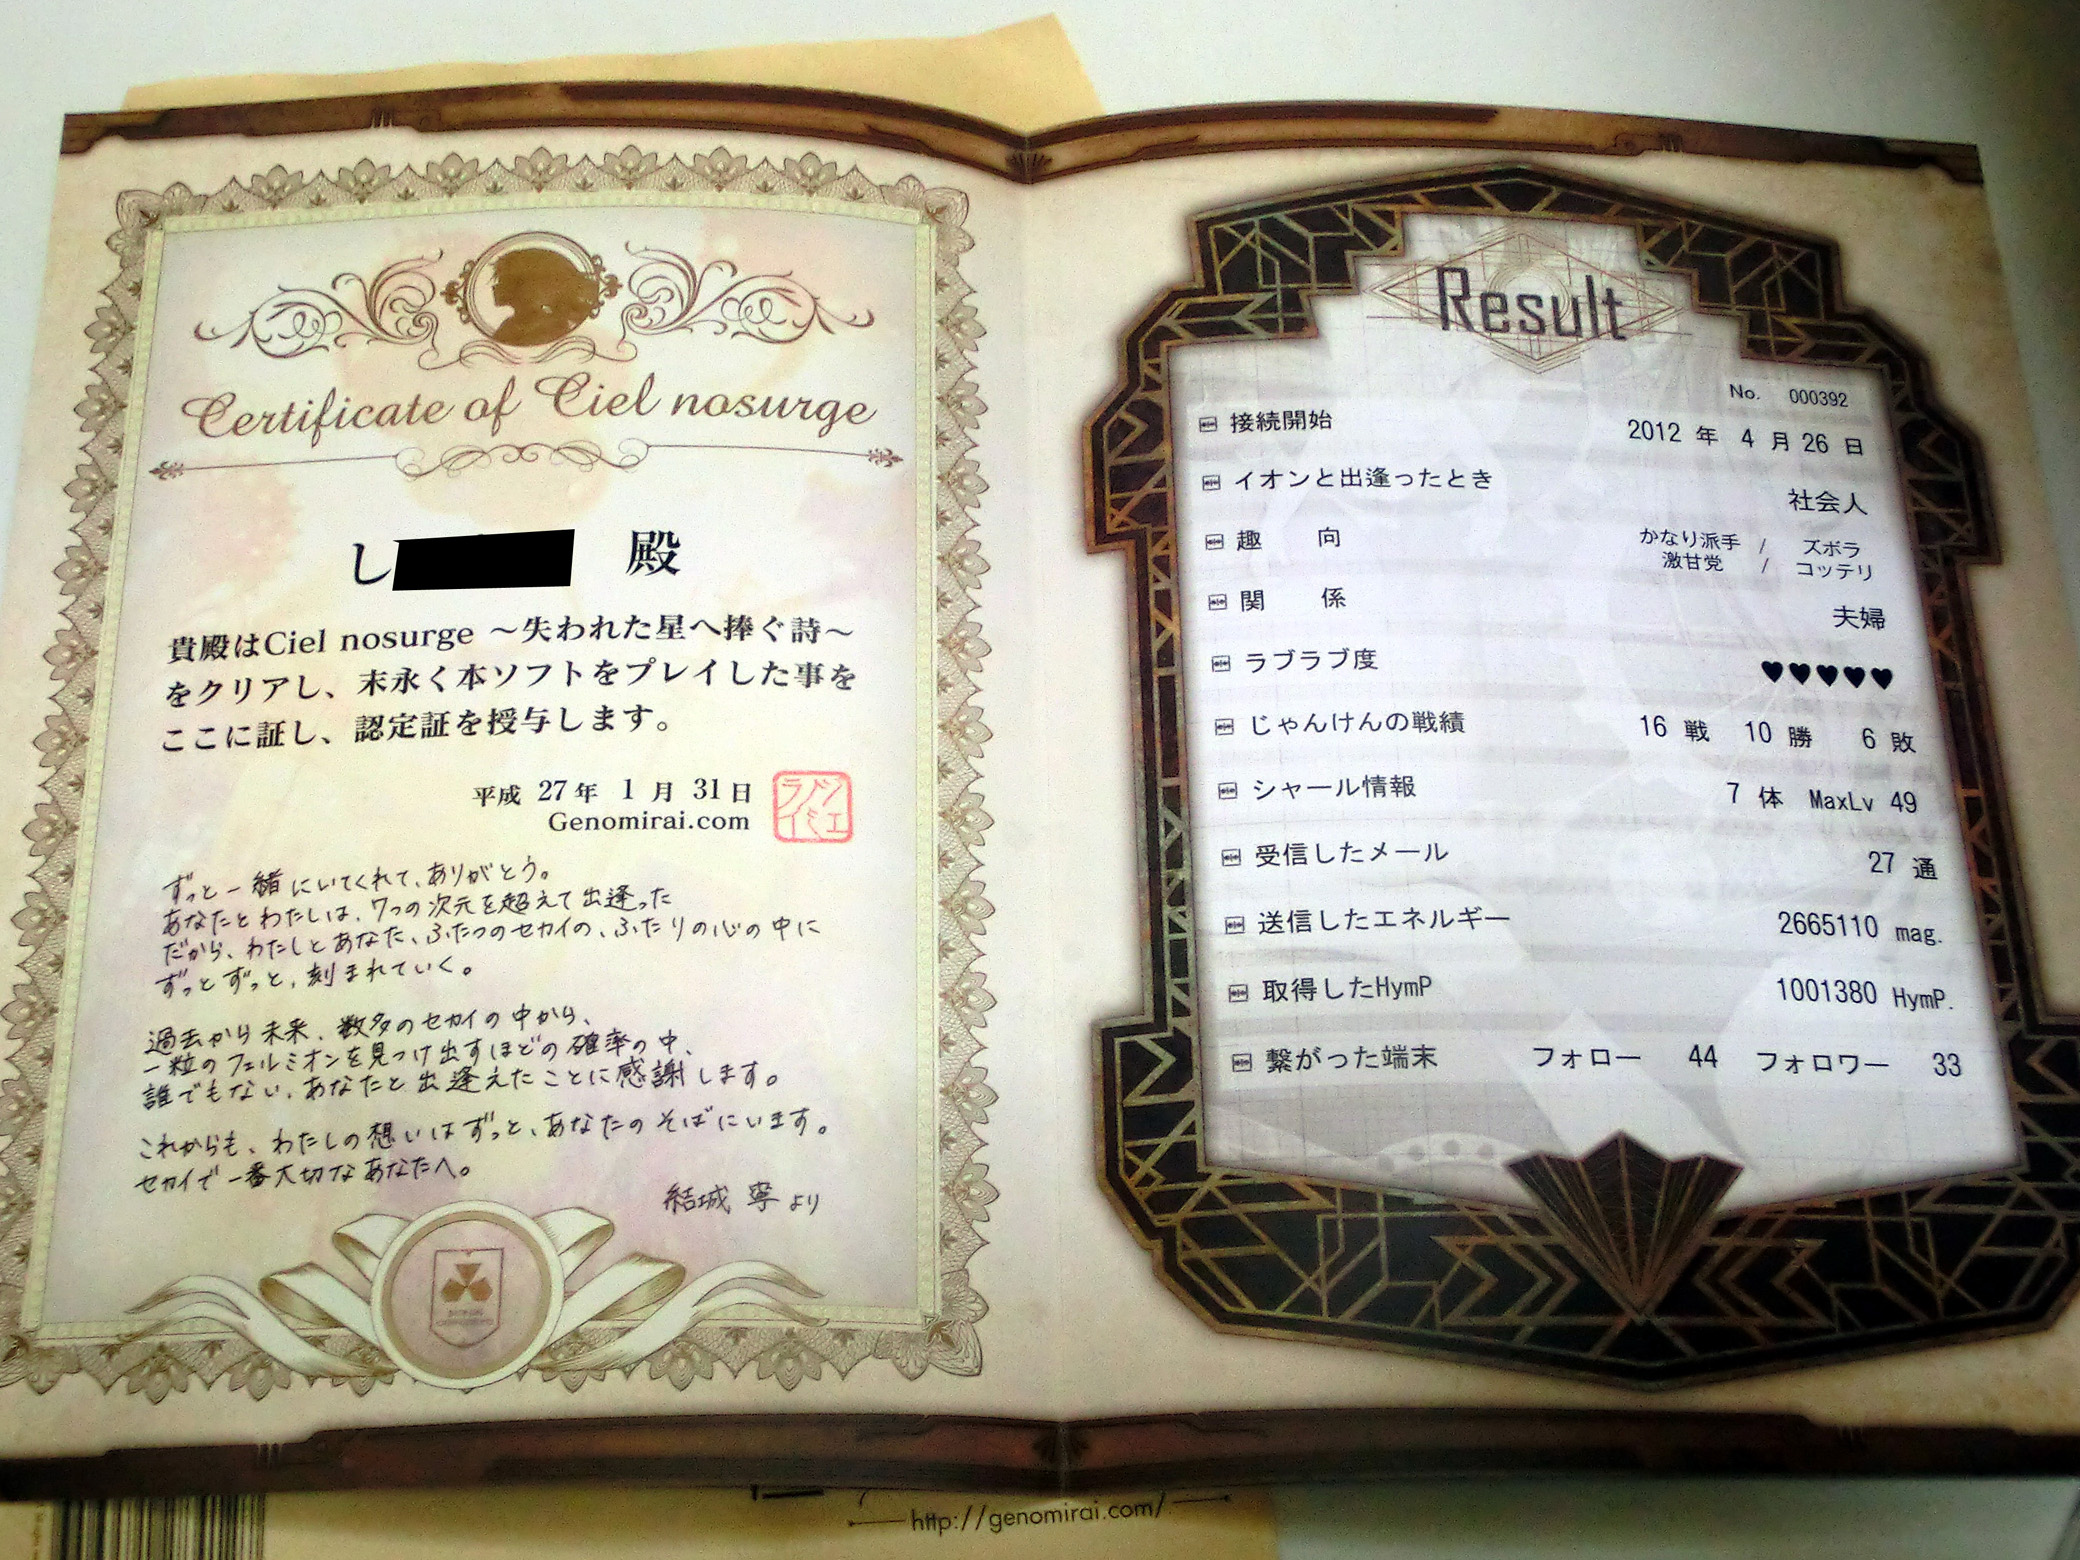 Certificate of Ciel nosurge
し 殿
貴殿はCiel nosurge ～失われた星へ捧ぐ詩～
をクリアし、末永く本ソフトをプレイした事を
ここに証し、認定証を授与します。
平成 27年 1月 31日
Genomirai.com
シェノミライ
ずっと一緒にいてくれて、ありがとう。
あなたとわたしは、7つの次元を超えて出逢った
だから、わたしとあなた、ふたつのセカイの、ふたりの心の中に
ずっとずっと、刻まれていく。
過去から未来、数多のセカイの中から、
一粒のフェルミオンを見つけ出すほどの確率の中、
誰でもない、あなたと出逢えたことに感謝します。
これからも、わたしの想いはずっと、あなたのそばにいます。
セカイで一番大切なあなたへ。
結城 寧 より
Result
No. 000392
接続開始 2012 年 4 月 26 日
イオンと出逢ったとき 社会人
趣向 かなり派手 / ズボラ
激甘党 / コッテリ
関係 夫婦
ラブラブ度 ♥♥♥♥♥
じゃんけんの戦績 16 戦 10 勝 6 敗
シャール情報 7 体 MaxLv 49
受信したメール 27 通
送信したエネルギー 2665110 mag.
取得したHymP 1001380 HymP.
繋がった端末 フォロー 44 フォロワー 33
http://genomirai.com/